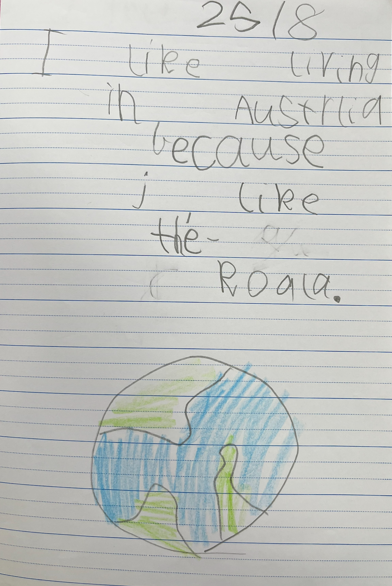 25/8
I like living
in Austrlia
because
i like
the
Roala.